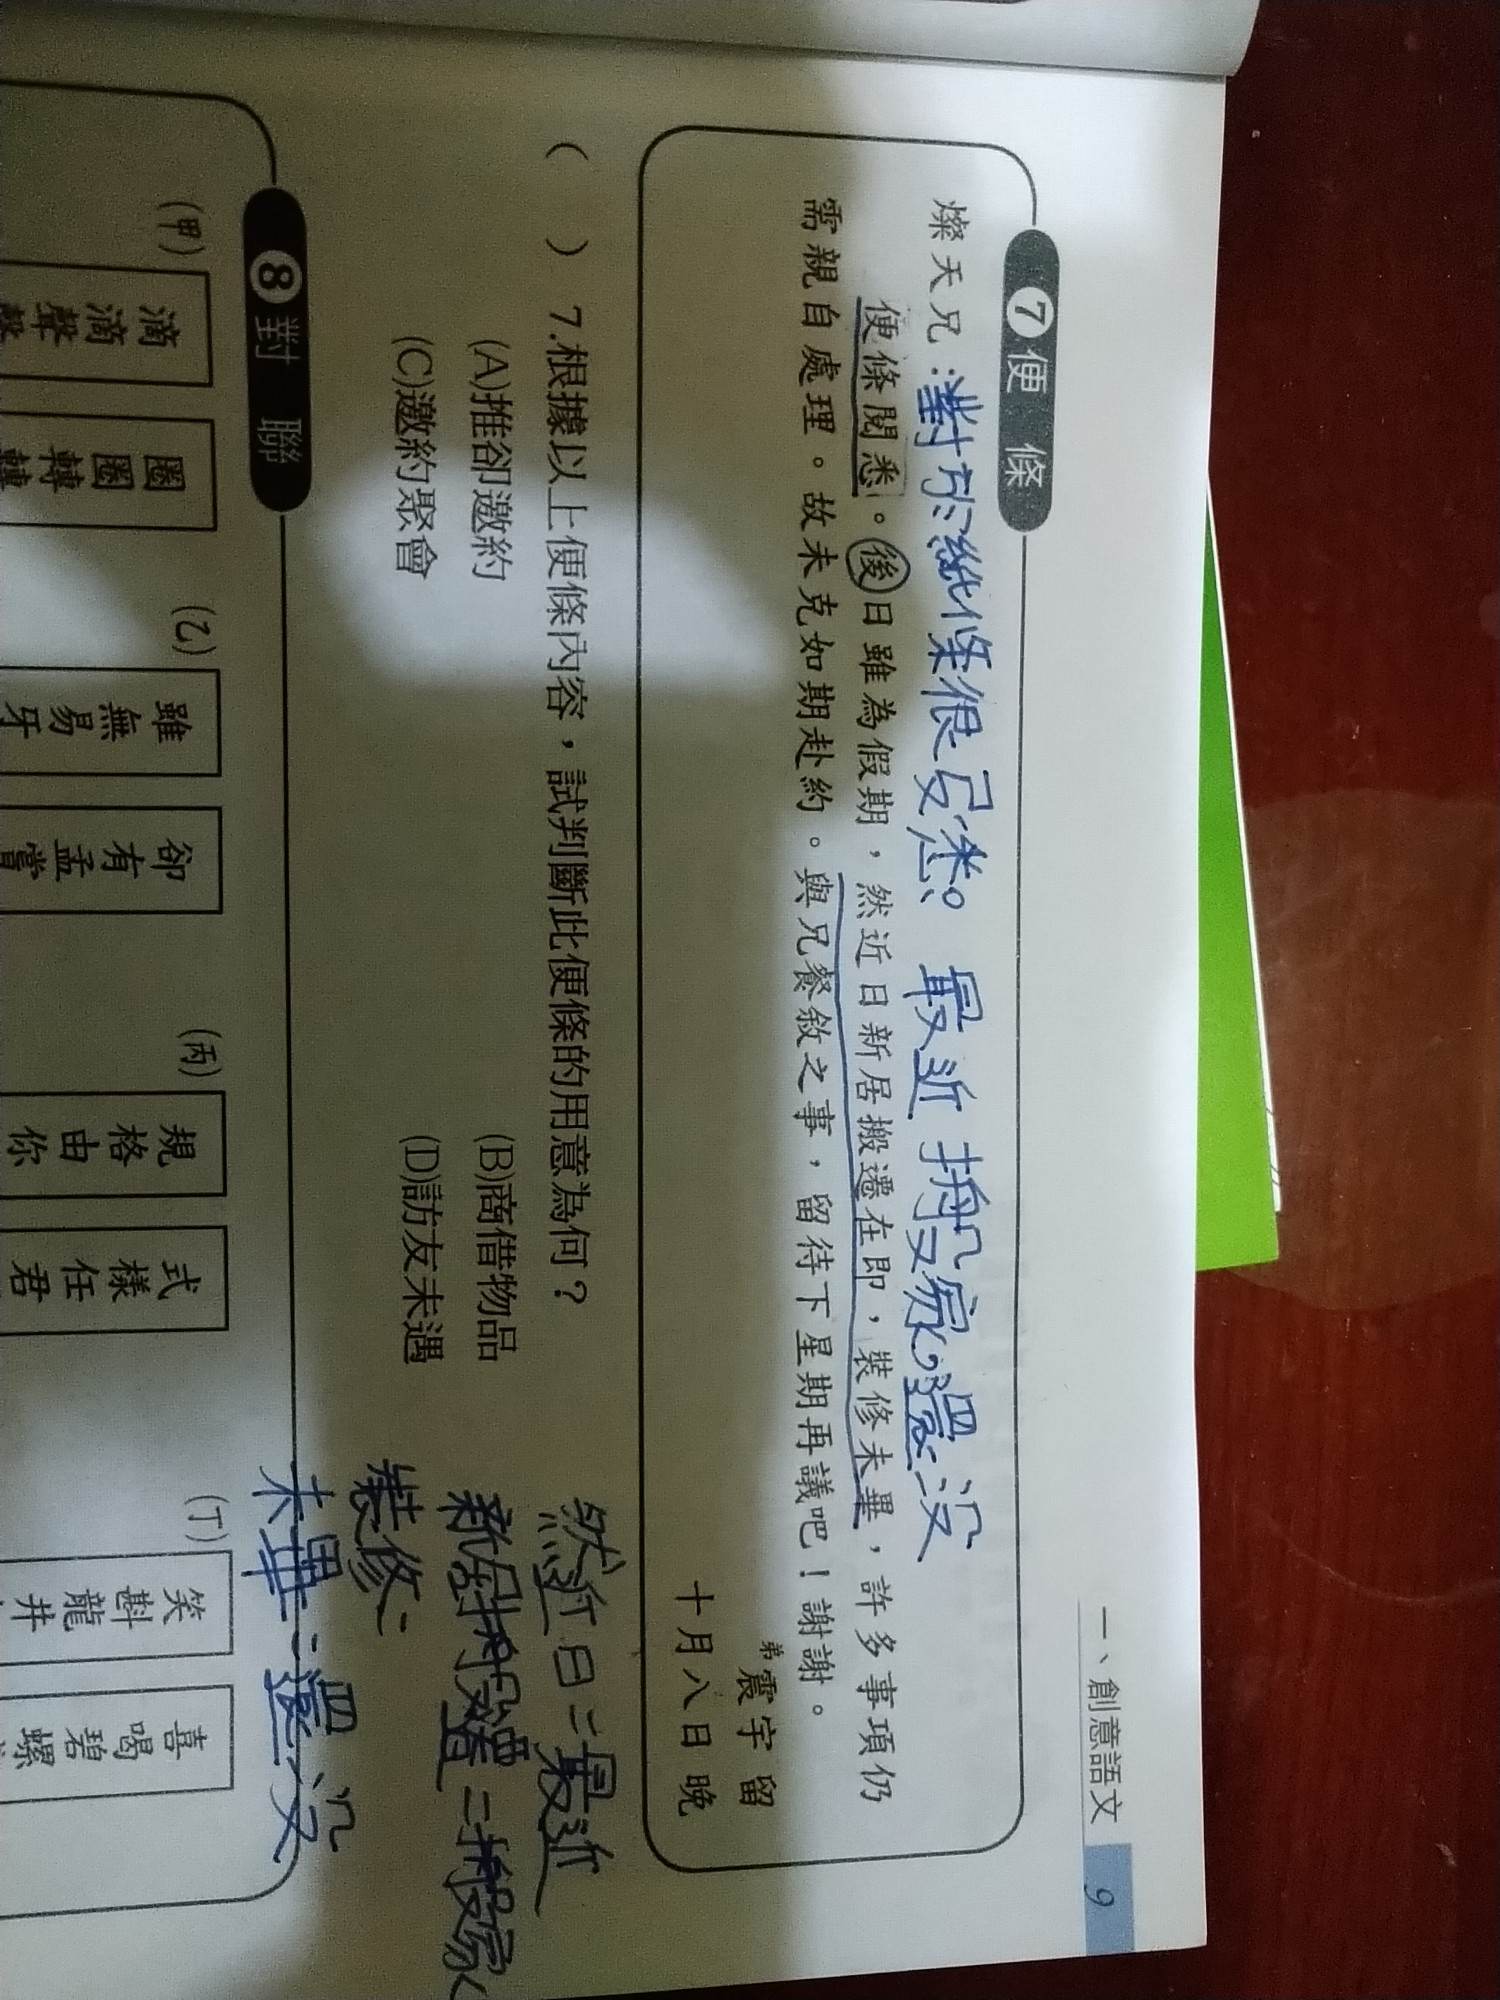 一、創意語文 9
7 便條
燦天兄：
對於紙條很反悉。最近搬家，還沒
便條閱悉。後日雖為假期，然近日新居搬遷在即，裝修未畢，許多事項仍
需親自處理。故未克如期赴約。與兄餐敘之事，留待下星期再議吧！謝謝。
弟震宇 留
十月八日晚
（ ）7.根據以上便條內容，試判斷此便條的用意為何？
(A)推卻邀約 (B)商借物品
(C)邀約聚會 (D)訪友未遇
然近日=最近
新居搬遷=搬家
裝修:
未畢:還沒
8 對聯
(甲) 滴滴聲 圈圈轉
(乙) 雖無易牙 卻有孟嘗
(丙) 規格由你 式樣任君
(丁) 笑斟龍井 喜喝碧螺